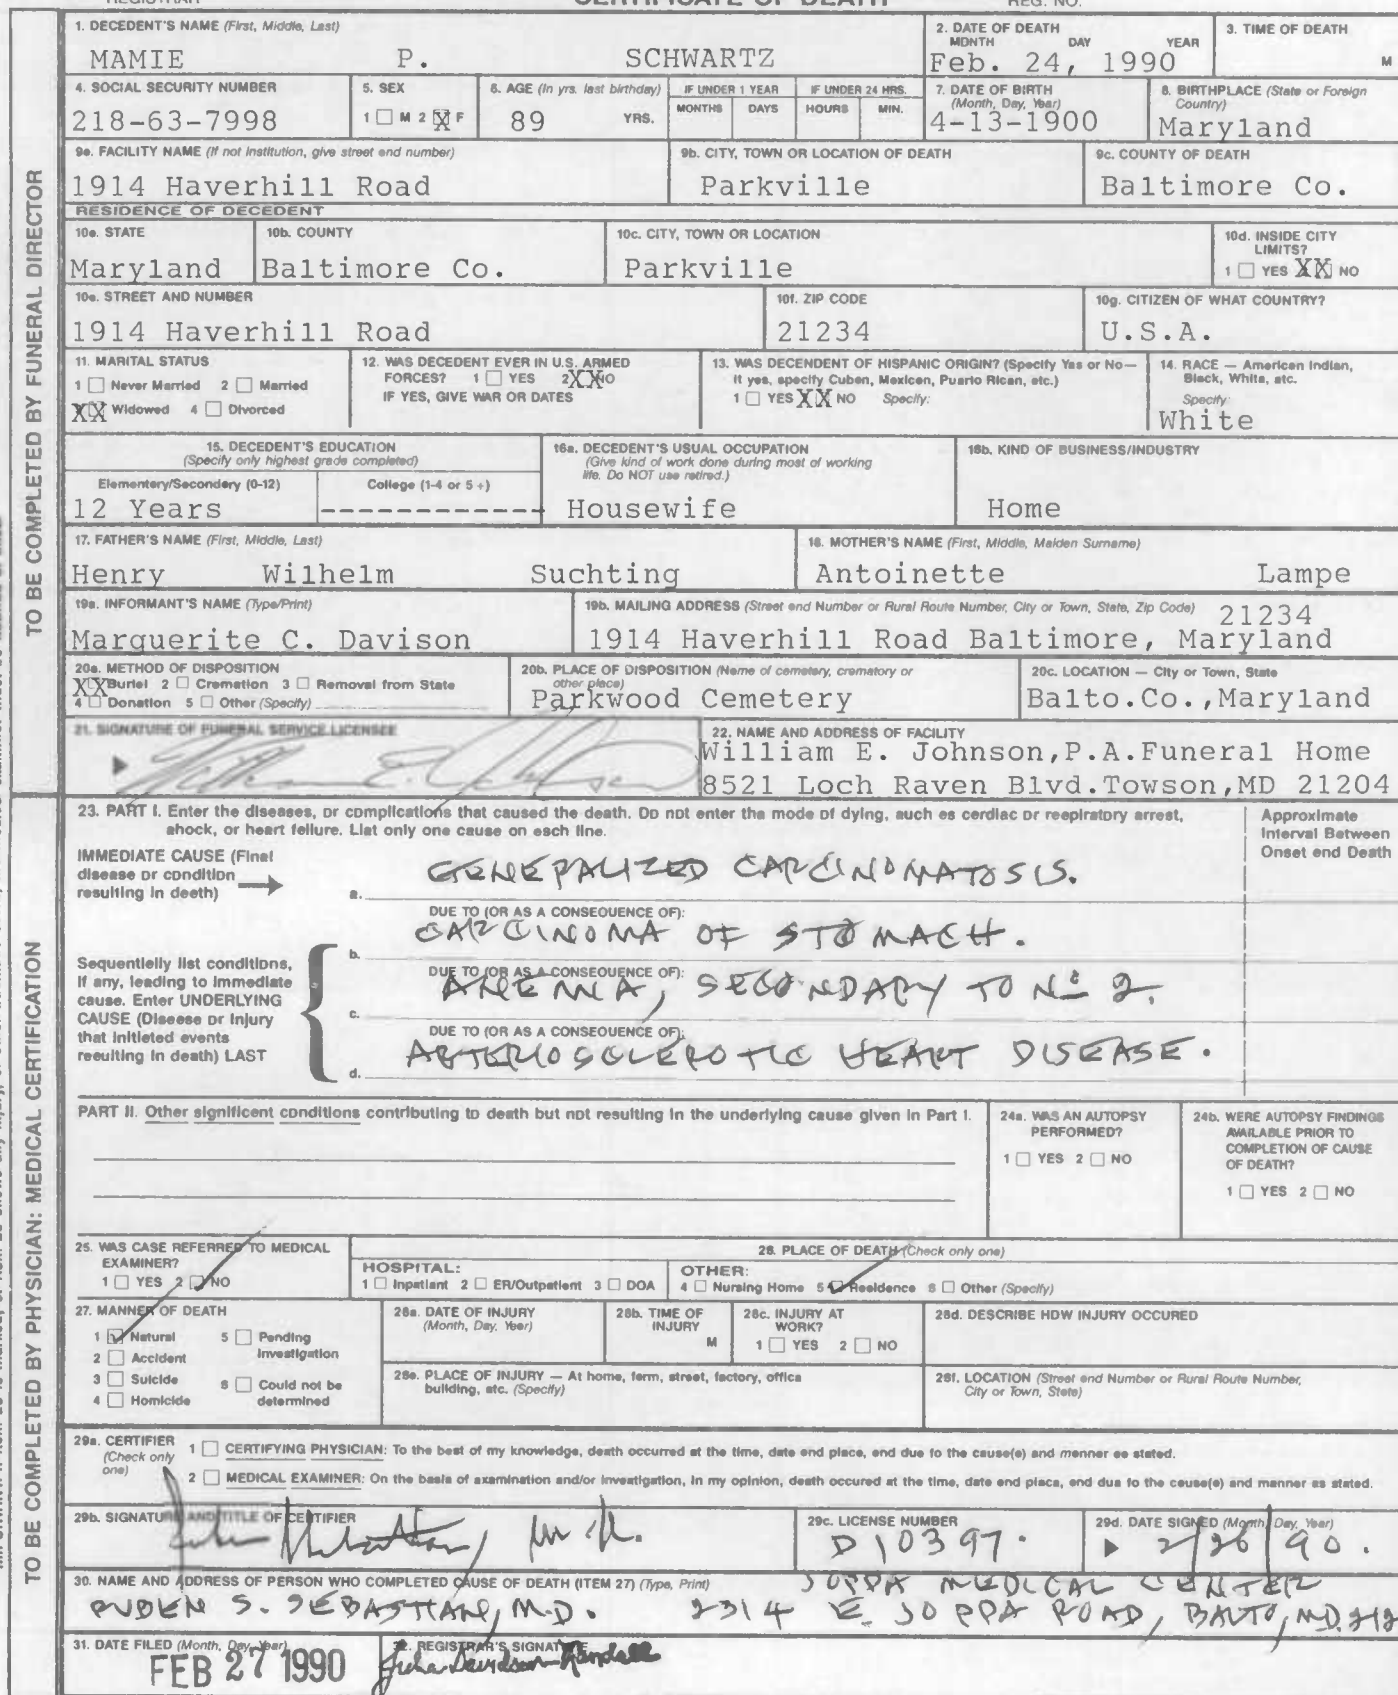 CERTIFICATE OF DEATH
REGISTRAR
REG. NO.
1. DECEDENT'S NAME (First, Middle, Last)
MAMIE P. SCHWARTZ
2. DATE OF DEATH
MONTH DAY YEAR
Feb. 24, 1990
3. TIME OF DEATH
M
4. SOCIAL SECURITY NUMBER
218-63-7998
5. SEX
1 ☐ M 2 ☒ F
6. AGE (In yrs. last birthday)
89 YRS.
IF UNDER 1 YEAR
MONTHS DAYS
IF UNDER 24 HRS.
HOURS MIN.
7. DATE OF BIRTH
(Month, Day, Year)
4-13-1900
8. BIRTHPLACE (State or Foreign
Country)
Maryland
9a. FACILITY NAME (If not institution, give street and number)
1914 Haverhill Road
9b. CITY, TOWN OR LOCATION OF DEATH
Parkville
9c. COUNTY OF DEATH
Baltimore Co.
RESIDENCE OF DECEDENT
10a. STATE
Maryland
10b. COUNTY
Baltimore Co.
10c. CITY, TOWN OR LOCATION
Parkville
10d. INSIDE CITY
LIMITS?
1 ☐ YES XX NO
10e. STREET AND NUMBER
1914 Haverhill Road
10f. ZIP CODE
21234
10g. CITIZEN OF WHAT COUNTRY?
U.S.A.
11. MARITAL STATUS
1 ☐ Never Married 2 ☐ Married
XX Widowed 4 ☐ Divorced
12. WAS DECEDENT EVER IN U.S. ARMED
FORCES? 1 ☐ YES 2 XX NO
IF YES, GIVE WAR OR DATES
13. WAS DECENDENT OF HISPANIC ORIGIN? (Specify Yes or No—
If yes, specify Cuban, Mexican, Puerto Rican, etc.)
1 ☐ YES XX NO Specify:
14. RACE — American Indian,
Black, White, etc.
Specify:
White
15. DECEDENT'S EDUCATION
(Specify only highest grade completed)
Elementary/Secondary (0-12)
12 Years
College (1-4 or 5 +)
----------------
16a. DECEDENT'S USUAL OCCUPATION
(Give kind of work done during most of working
life. Do NOT use retired.)
Housewife
16b. KIND OF BUSINESS/INDUSTRY
Home
17. FATHER'S NAME (First, Middle, Last)
Henry Wilhelm Suchting
18. MOTHER'S NAME (First, Middle, Maiden Surname)
Antoinette Lampe
19a. INFORMANT'S NAME (Type/Print)
Marguerite C. Davison
19b. MAILING ADDRESS (Street and Number or Rural Route Number, City or Town, State, Zip Code)
21234
1914 Haverhill Road Baltimore, Maryland
20a. METHOD OF DISPOSITION
XX Burial 2 ☐ Cremation 3 ☐ Removal from State
4 ☐ Donation 5 ☐ Other (Specify)
20b. PLACE OF DISPOSITION (Name of cemetery, crematory or
other place)
Parkwood Cemetery
20c. LOCATION — City or Town, State
Balto.Co.,Maryland
21. SIGNATURE OF FUNERAL SERVICE LICENSEE
William E. Johnson
22. NAME AND ADDRESS OF FACILITY
William E. Johnson,P.A.Funeral Home
8521 Loch Raven Blvd.Towson,MD 21204
TO BE COMPLETED BY FUNERAL DIRECTOR
23. PART I. Enter the diseases, or complications that caused the death. Do not enter the mode of dying, such as cardiac or respiratory arrest,
shock, or heart failure. List only one cause on each line.
Approximate
Interval Between
Onset and Death
IMMEDIATE CAUSE (Final
disease or condition
resulting in death)
a. GENERALIZED CARCINOMATOSIS.
DUE TO (OR AS A CONSEQUENCE OF):
b. CARCINOMA OF STOMACH.
Sequentially list conditions,
if any, leading to immediate
cause. Enter UNDERLYING
CAUSE (Disease or injury
that initiated events
resulting in death) LAST
DUE TO (OR AS A CONSEQUENCE OF):
c. ANEMIA, SECONDARY TO No 2.
DUE TO (OR AS A CONSEQUENCE OF):
d. ARTERIOSCLEROTIC HEART DISEASE.
PART II. Other significant conditions contributing to death but not resulting in the underlying cause given in Part I.
24a. WAS AN AUTOPSY
PERFORMED?
1 ☐ YES 2 ☐ NO
24b. WERE AUTOPSY FINDINGS
AVAILABLE PRIOR TO
COMPLETION OF CAUSE
OF DEATH?
1 ☐ YES 2 ☐ NO
25. WAS CASE REFERRED TO MEDICAL
EXAMINER?
1 ☐ YES 2 ☑ NO
26. PLACE OF DEATH (Check only one)
HOSPITAL:
1 ☐ Inpatient 2 ☐ ER/Outpatient 3 ☐ DOA
OTHER:
4 ☐ Nursing Home 5 ☑ Residence 6 ☐ Other (Specify)
27. MANNER OF DEATH
1 ☑ Natural 5 ☐ Pending
Investigation
2 ☐ Accident
3 ☐ Suicide 6 ☐ Could not be
determined
4 ☐ Homicide
28a. DATE OF INJURY
(Month, Day, Year)
28b. TIME OF
INJURY
M
28c. INJURY AT
WORK?
1 ☐ YES 2 ☐ NO
28d. DESCRIBE HOW INJURY OCCURED
28e. PLACE OF INJURY — At home, farm, street, factory, office
building, etc. (Specify)
28f. LOCATION (Street and Number or Rural Route Number,
City or Town, State)
29a. CERTIFIER
(Check only
one)
1 ☐ CERTIFYING PHYSICIAN: To the best of my knowledge, death occurred at the time, date and place, and due to the cause(s) and manner as stated.
2 ☐ MEDICAL EXAMINER: On the basis of examination and/or investigation, in my opinion, death occured at the time, date and place, and due to the cause(s) and manner as stated.
29b. SIGNATURE AND TITLE OF CERTIFIER
M.D.
29c. LICENSE NUMBER
D10397.
29d. DATE SIGNED (Month, Day, Year)
2/26/90.
30. NAME AND ADDRESS OF PERSON WHO COMPLETED CAUSE OF DEATH (ITEM 27) (Type, Print)
JOPPA MEDICAL CENTER
RUBEN S. SEBASTIAN, M.D. 2314 E. JOPPA ROAD, BALTO, MD. 212
31. DATE FILED (Month, Day, Year)
FEB 27 1990
32. REGISTRAR'S SIGNATURE
Julia Davidson-Randall
TO BE COMPLETED BY PHYSICIAN: MEDICAL CERTIFICATION